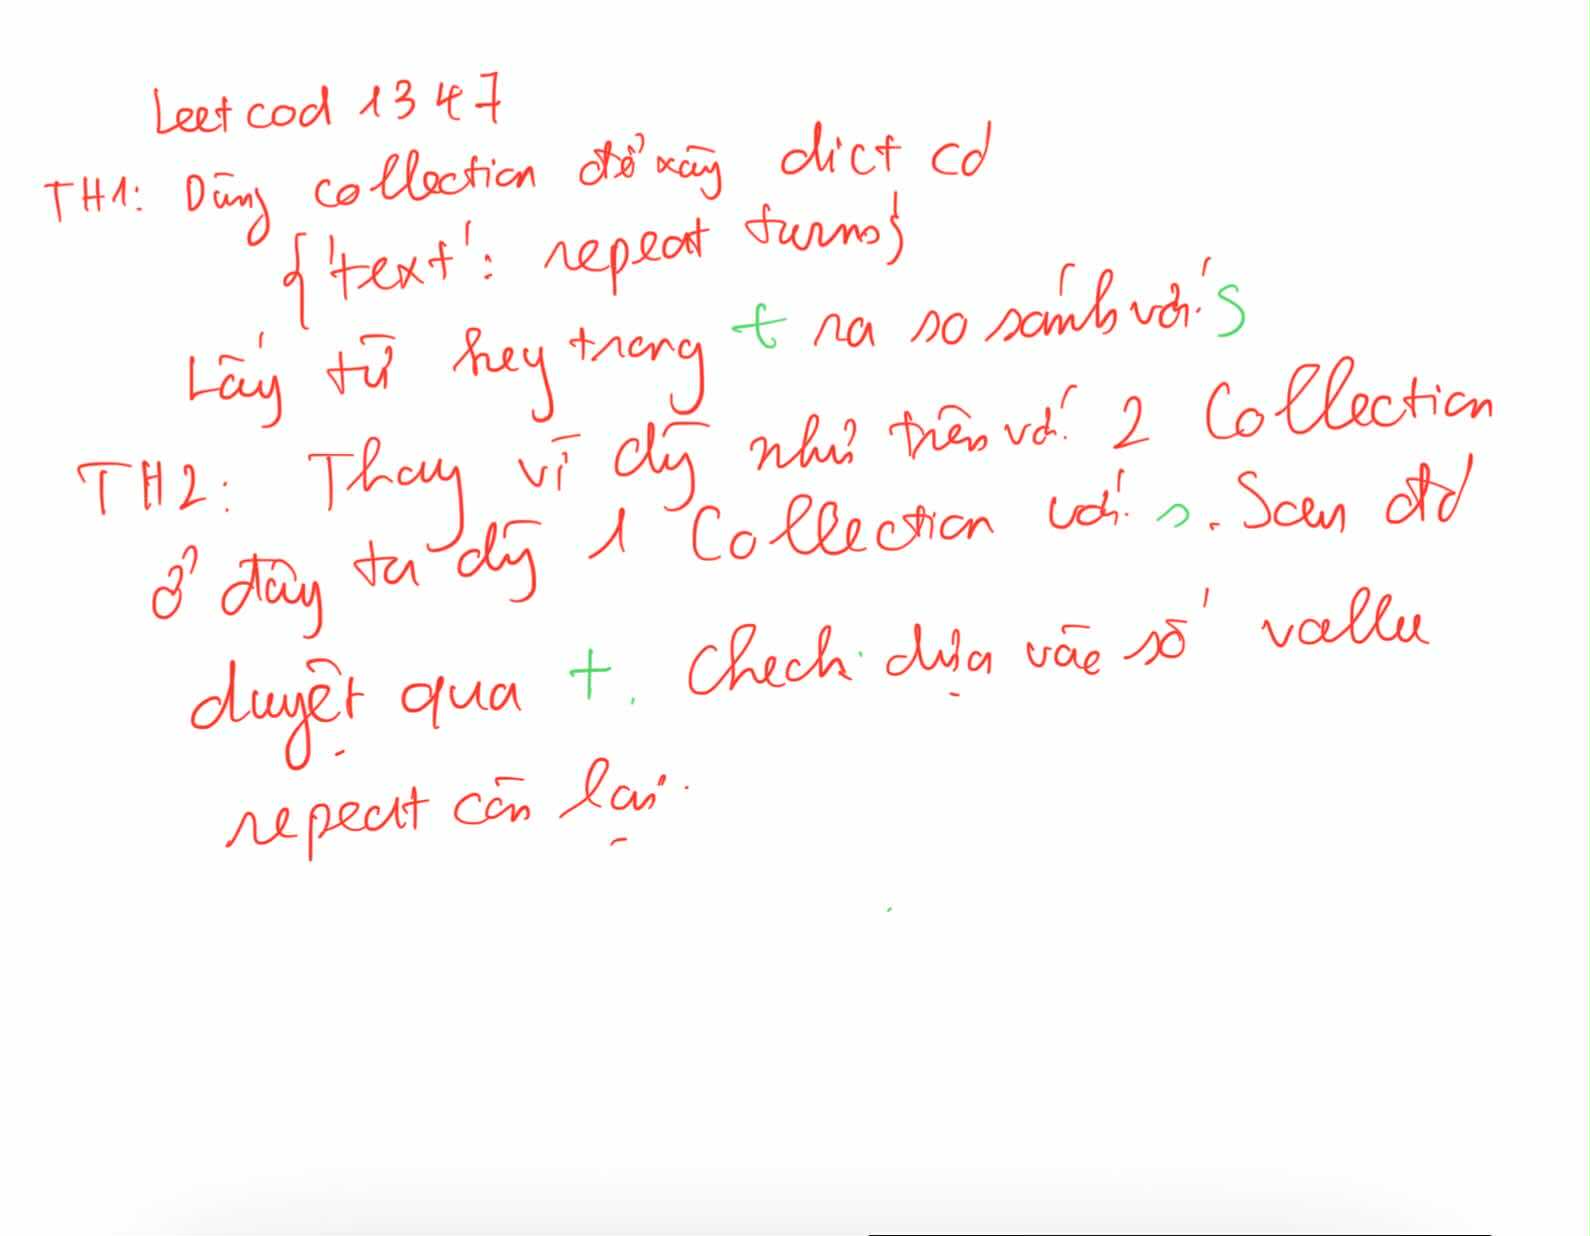 Leetcod 1347
TH1: Dùng collection để xây dict cd
{'text': repeat turns}
Lấy từ key trong t ra so sánh với s
TH2: Thay vì dg như trên với 2 Collection
ở đây ta dg 1 Collection với s. Sau đó
duyệt qua t. Check dựa vào số vallu
repeat còn lại.